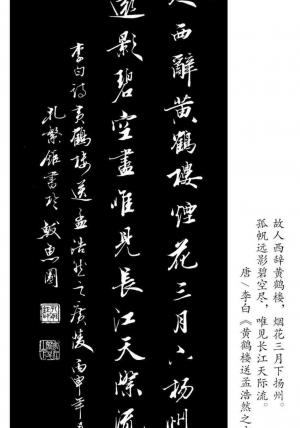 人西辭黃鶴樓煙花三月下揚州
遠影碧空盡唯見長江天際流
李白詩黃鶴樓送孟浩然之廣陵丙申年
孔繁
書於
圖
故人西辞黄鹤楼，烟花三月下扬州。
孤帆远影碧空尽，唯见长江天际流。
唐\李白《黄鹤楼送孟浩然之